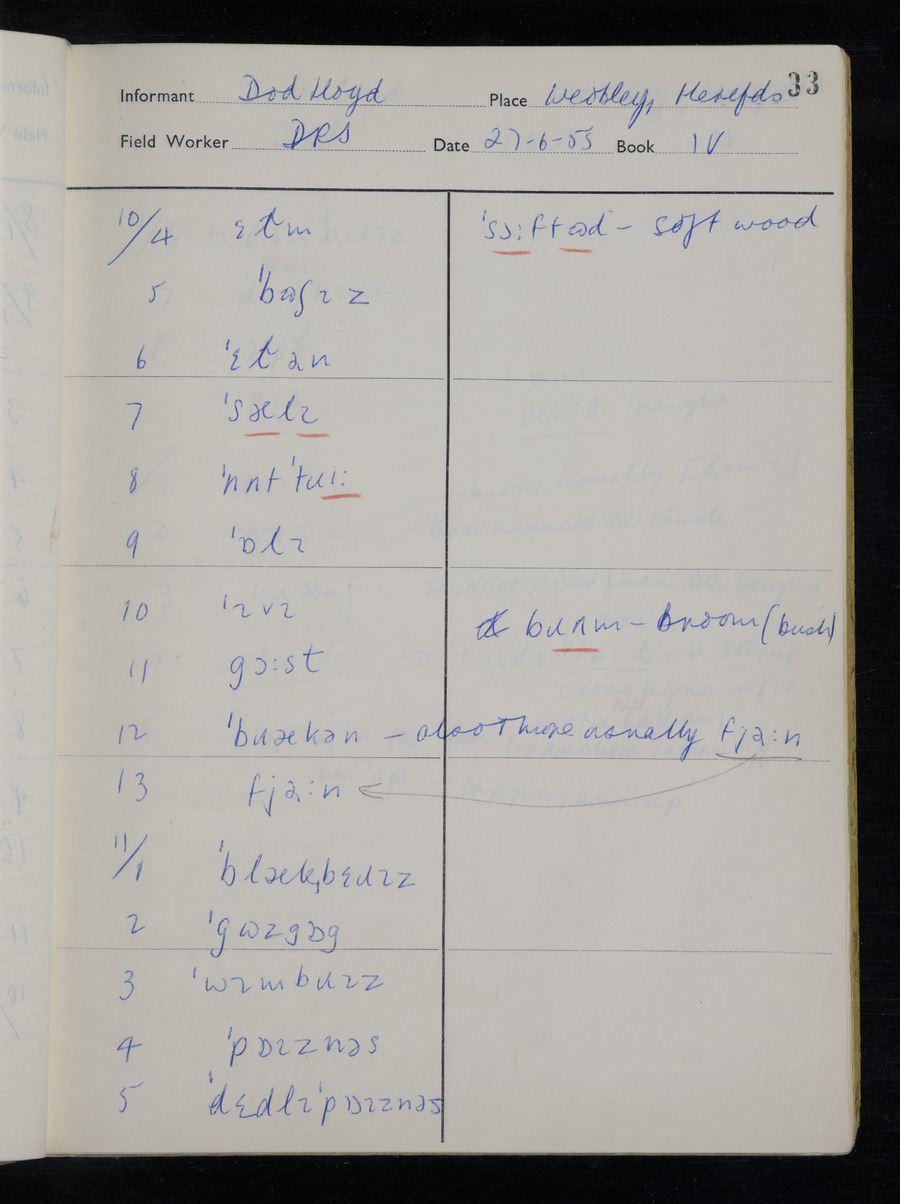 33
Informant Dod Lloyd Place Weobley, Herefds
Field Worker DRS Date 27-6-55 Book IV
10/4 ɛɫm ˈsɔːftɷd – soft wood
5 ˈbɷʃɪz
6 ˈɛɫən
7 ˈsælɪ
8 ˈnʌt ˈtɹiː
9 ˈɒlɪ
10 ˈɪvɪ bɹʌm – broom (bush)
11 gɔːst
12 ˈbɹækən – also + more usually fjəːn
13 fjəːn
11/1 ˈblækˌbɛɹɪz
2 ˈgɷzgɒg
3 ˈwɪmbɹɪz
4 ˈpɒɪznəs
5 ˈdɛdlɪˈpɒɪznəs